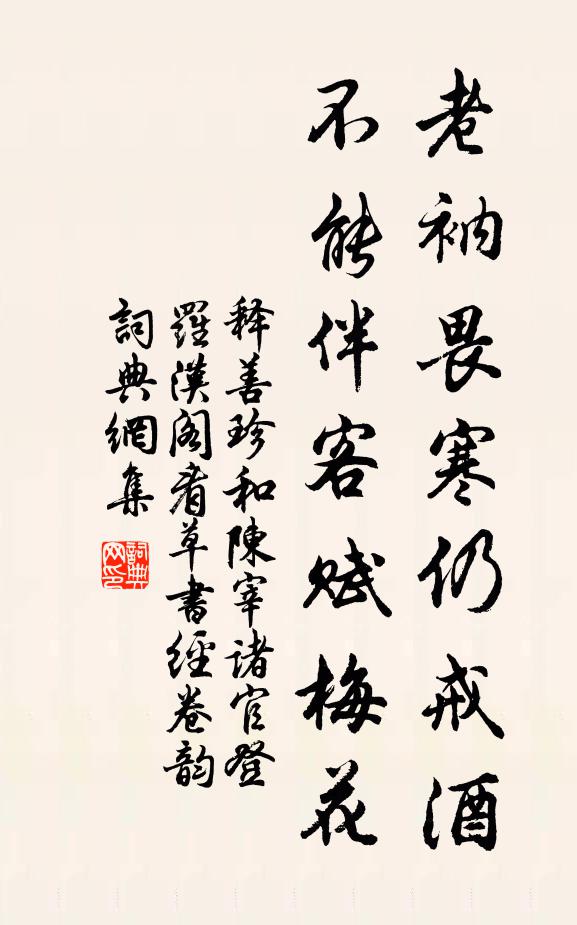 老衲畏寒仍戒酒
不能伴客赋梅花
释善珍和陳宰诸官登
羅漢阁看草書經卷韵
詞典網集
詞典
网印